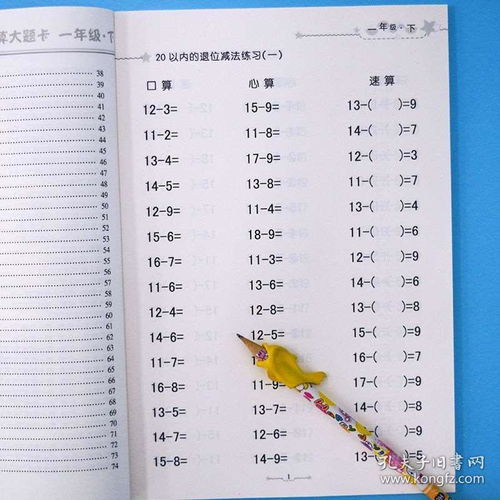 算大题卡 一年级·下
38
39
40
41
42
43
44
45
46
47
48
49
50
51
52
53
54
55
56
57
58
59
60
61
62
63
64
65
66
67
68
69
70
71
72
73
74
一年级·下
20以内的退位减法练习(一)
口算 心算 速算
12-3= 15-9= 13-( )=9
11-2= 11-8= 14-( )=7
13-4= 17-9= 12-( )=3
14-5= 13-8= 11-( )=7
12-9= 11-4= 13-( )=4
15-6= 18-9= 11-( )=6
16-7= 11-3= 12-( )=7
11-6= 13-6= 14-( )=5
12-4= 12-8= 13-( )=8
14-6= 12-5= 15-( )=9
11-7= 16-( )=7
16-8= 11-9= 17-( )=9
13-5= 13-7= 14-( )=8
14-7= 12-6= 15-( )=9
15-8= 14-9= 13-( )=5
1
孔夫子旧书网
www.kongfz.com